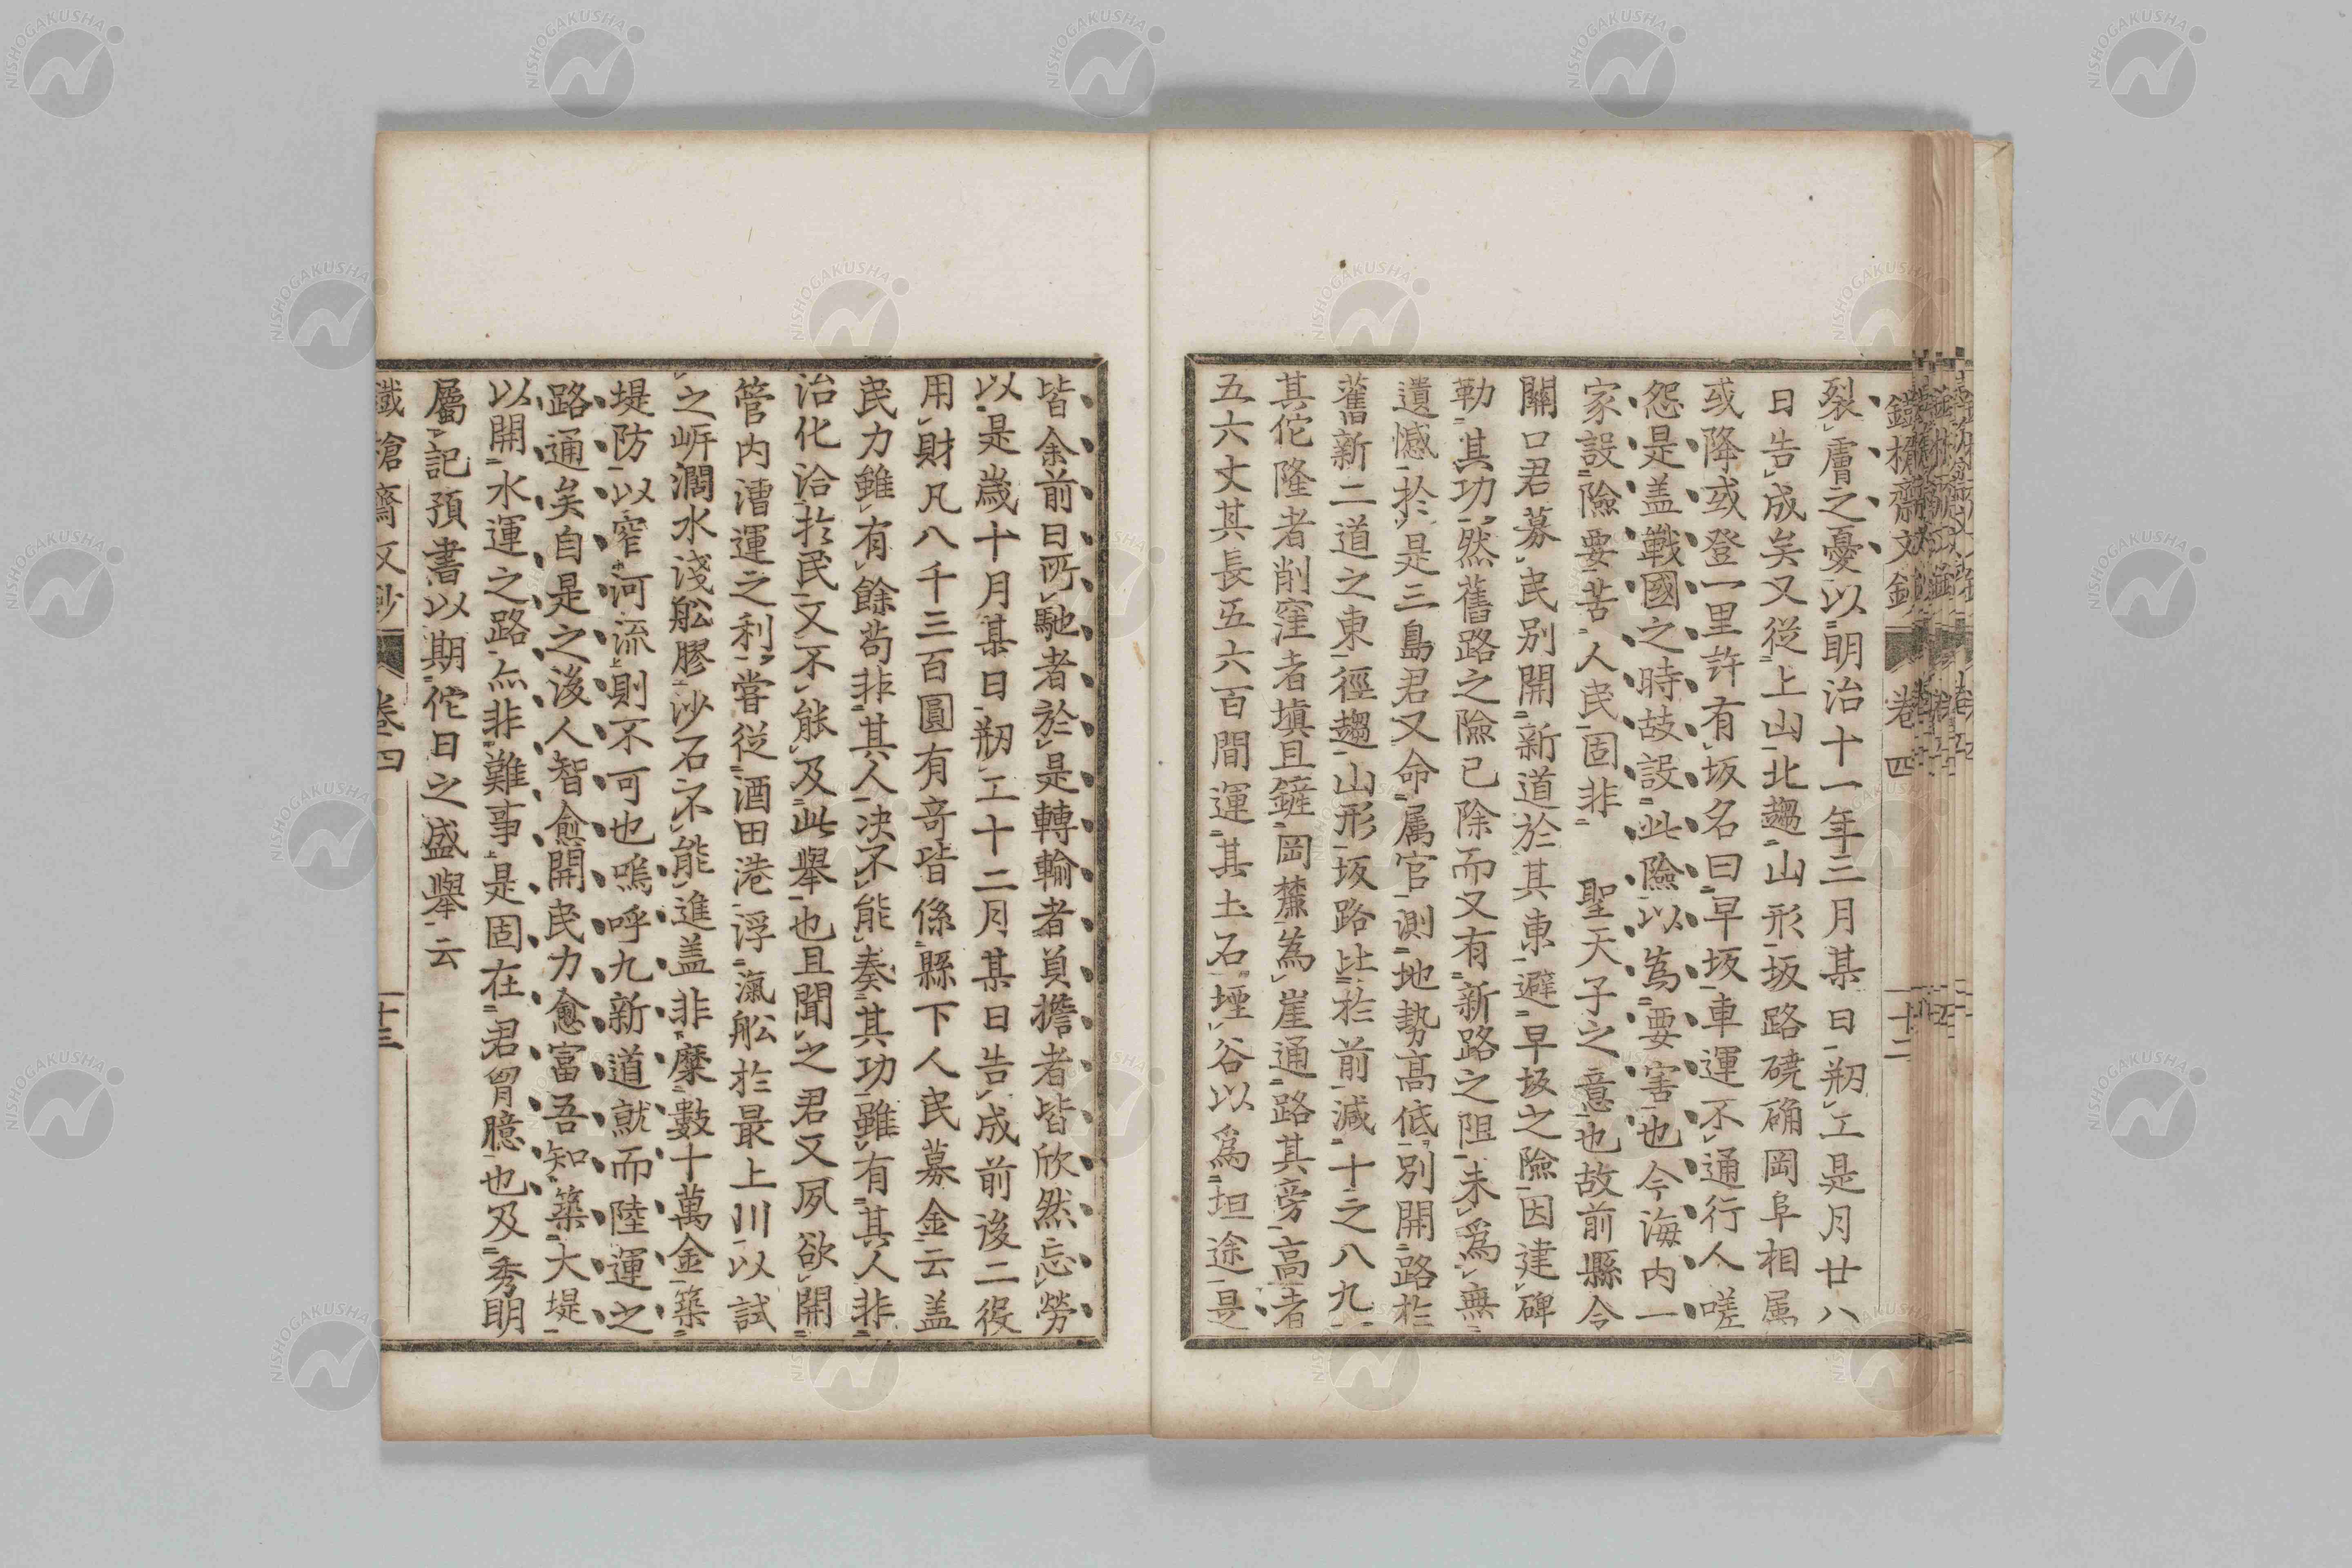 鐵槍齋文鈔 卷四 十二
裂膚之憂以明治十一年三月某日剏工是月廿八
日告成矣又從上山北趨山形坂路磽确岡阜相属
或降或登一里許有坂名曰早坂車運不通行人嗟
怨是盖戰國之時故設此險以為要害也今海内一
家設險要苦人民固非 聖天子之意也故前縣令
關口君募民別開新道於其東避早坂之險因建碑
勒其功然舊路之險已除而又有新路之阻未爲無
遺憾於是三島君又命属官測地勢高低別開路於
舊新二道之東徑趨山形坂路比於前減十之八九
其佗隆者削窪者填且鏟岡麓為崖通路其旁高者
五六丈其長五六百間運其土石堙谷以爲坦途是
皆余前日所馳者於是轉輸者負擔者皆欣然忘勞
以是歲十月某日剏工十二月某日告成前後二役
用財凡八千三百圓有奇皆係縣下人民募金云盖
民力雖有餘苟非其人决不能奏其功雖有其人非
治化洽於民又不能及此舉也且聞之君又夙欲開
管内漕運之利嘗從酒田港浮滊舩於最上川以試
之岍濶水淺舩膠沙石不能進盖非糜數十萬金築
堤防以窄河流則不可也嗚呼九新道就而陸運之
路通矣自是之後人智愈開民力愈富吾知築大堤
以開水運之路亦非難事是固在君胷臆也及秀明
屬記預書以期佗日之盛舉云
鐵槍齋文鈔 卷四 十三